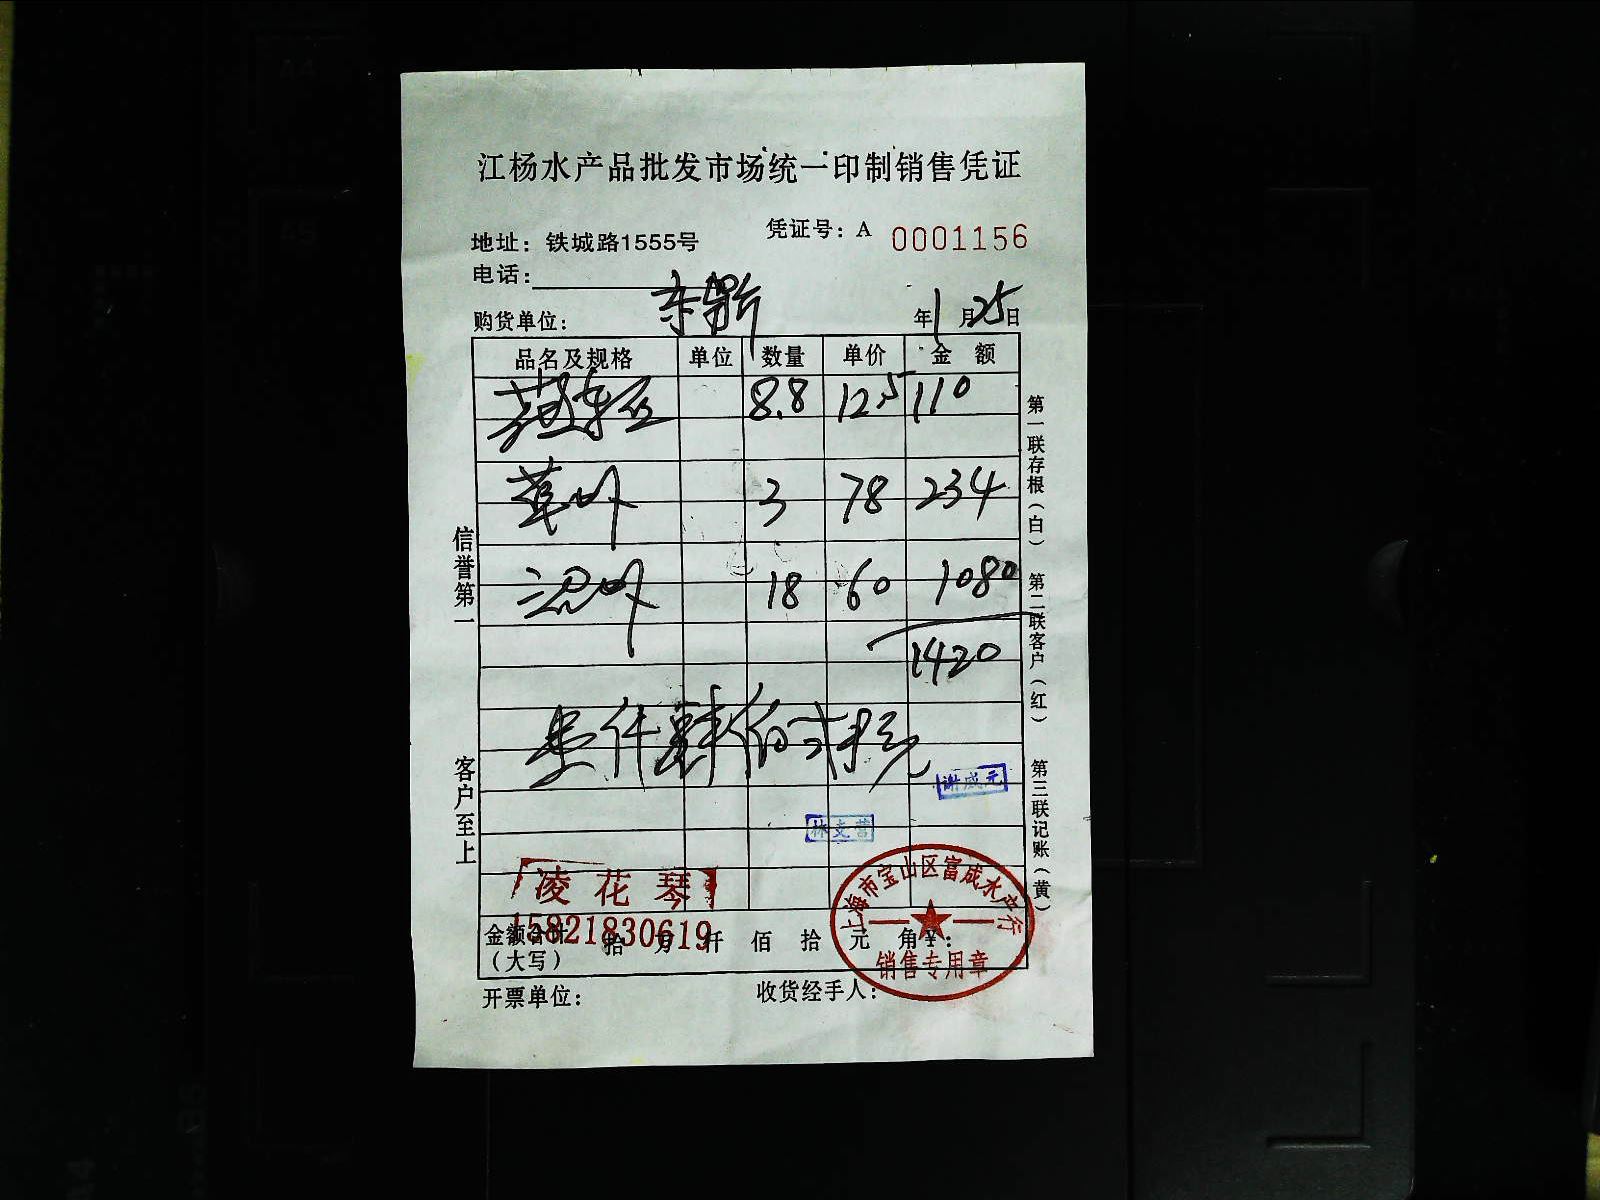 江杨水产品批发市场统一印制销售凭证
凭证号：A 0001156
地址：铁城路1555号
电话：
购货单位： 年1月25日
品名及规格 单位 数量 单价 金额
8.8 12.5 110
3 78 234
18 60 1080
1420
壹仟肆佰弍拾元
谢成元
林支营
凌花琴
15821830619
上海市宝山区富成水产行
销售专用章
金额合计（大写） 拾 万 仟 佰 拾 元 角 ¥：
开票单位： 收货经手人：
信誉第一
客户至上
第一联存根（白）
第二联客户（红）
第三联记账（黄）